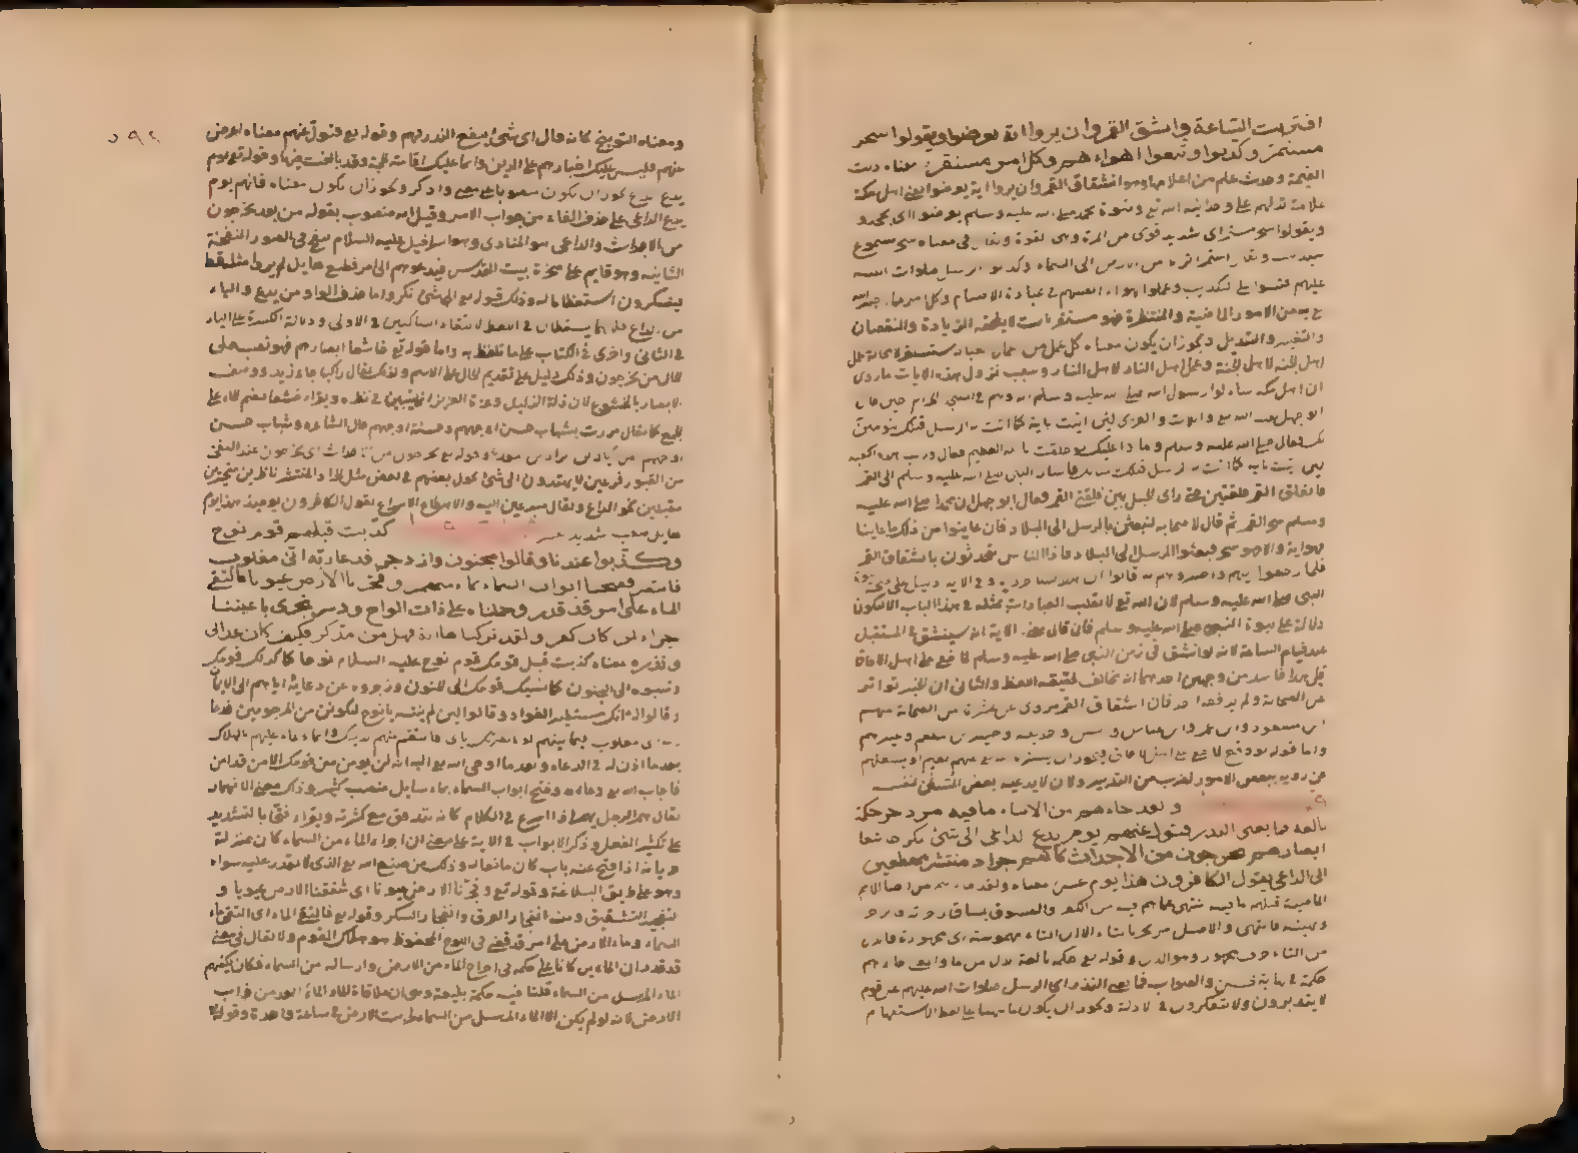 اقتربت الساعة وانشق القمر وان يروا اية يعرضوا ويقولوا سحر
مستمر وكذبوا واتبعوا اهواءهم وكل امر مستقر معناه دنت
القيمة وحدث علم من اعلامها وهو انشقاق القمر وان يروا اية يعرضوا يعني اهل مكة
علامة تدلهم على وحدانية الله تع ونبوة محمد صلى الله عليه وسلم يعرضوا
ويقولوا سحر مستمر اي شديد قوي من المرة وهي القوة ويقال في معناه سحر
استمراره من الارض الى السماء وكذبوا الرسل صلوات الله
عليهم في عبادة الاصنام وكل امر
من الامور الماضية والمنتظرة فهو مستقر لا يلحقه الزيادة والنقصان
والتغيير والتبديل ويجوز ان يكون معناه كل عمل من
اهل الجنة لاهل الجنة وعمل اهل النار لاهل النار وسبب نزول هذه الايات ما روي
ان اهل مكة سالوا رسول الله صلى الله عليه وسلم
ابو جهل واللات والعزى لئن اتيت باية كما اتت به الرسل
فقال صلى الله عليه وسلم وما ذا عليك
النبي صلى الله عليه وسلم الى القمر
فانفلق القمر فلقتين حتى راى الجبل بين فلقتي القمر فقال ابو جهل ان محمدا صلى الله عليه
وسلم سحر القمر ثم قال لاصحابه لنبعثن بالرسل الى البلاد فان عاينوا من ذلك ما عاينا
فهو اية والا فهو سحر فبعثوا الرسل الى البلاد فاذا الناس يتحدثون بانشقاق القمر
فلما رجعوا اليهم قالوا وفي الاية دليل على صحة نبوة
النبي صلى الله عليه وسلم لان الله تع لا يقلب العادات بمثله في هذا الباب الا ليكون
دلالة على نبوة النبي صلى الله عليه وسلم فان قال الاية انه سينشق في المستقبل
عند قيام الساعة لانه لو انشق في زمن النبي صلى الله عليه وسلم لما خفي على اهل الافاق
قيل هذا فاسد من وجهين احدهما انه يخالف لحقيقة اللفظ والثاني ان الخبر تواتر
عن الصحابة ولم يدفعه احد فان انشقاق القمر مروي عن عشرة من الصحابة منهم
ابن مسعود وابن عمر وابن عباس وانس وحذيفة وجبير بن مطعم وغيرهم
واما قوله لو وقع لما خفي على اهل الافاق فيجوز ان
عن رؤيته ببعض الامور لضرب من التدبير ولان لا يدعيه بعض المتنبئين لنفسه
ولقد جاءهم من الانباء ما فيه مزدجر حكمة
بالغة فما تغني النذر فتول عنهم يوم يدع الداعي الى شيء نكر خاشعا
ابصارهم يخرجون من الاجداث كانهم جراد منتشر مهطعين
الى الداعي يقول الكافرون هذا يوم عسر معناه ولقد جاءهم من
الماضية قبلهم ما فيه منتهى عما هم فيه من الكفر والفسوق
من التاء حرف مجهور وهو الدال وقوله تع حكمة بالغة بدل من ما
حكمة في نهاية الحسن والصواب فما تغني النذر اي الرسل صلوات الله عليهم عن قوم
لا يتدبرون ولا يتفكرون في الادلة ويجوز ان يكون على لفظ الاستفهام
٥٩٢
ومعناه التوبيخ كانه قال اي شيء ينفع النذر لهم وقوله تع فتول عنهم معناه اعرض
عنهم فليس عليك اجبارهم على الدين وانما عليك اقامة الحجة وقد بالغت فيها وقوله تع يوم
يدع يجوز ان يكون منصوبا على معنى واذكر ويجوز ان يكون معناه فانهم يوم
يدع الداعي على حذف الفاء من جواب الامر وقيل انه منصوب بقوله من بعد يخرجون
من الاجداث والداعي هو المنادي وهو اسرافيل عليه السلام ينفخ في الصور النفخة
الثانية وهو قايم على صخرة بيت المقدس فيدعوهم الى امر فظيع هايل لم يروا مثله قط
فينكرون استعظاما له وذلك قوله تع الى شيء نكر واما حذف الواو من يدع والياء
من الداع فلانهما يسقطان في اللفظ لالتقاء الساكنين في الاولى ودلالة الكسرة على الياء
في الثاني واجري في الكتاب على ما تلفظ به واما قوله تع خاشعا ابصارهم فهو نصب على
الحال من يخرجون وذلك دليل على تقديم الحال على الاسم وكذلك يقال راكبا جاء زيد ووصف
الابصار بالخشوع لان ذلة الذليل وعزة العزيز تتبين في نظره ويقراء خشعا
الجمع كما يقال مررت بشباب حسن اوجههم وحسنة اوجههم قال الشاعر وشباب حسن
اوجههم من اياد بن نزار بن معد وقوله تع يخرجون من الاجداث اي يخرجون عند النفخ
من القبور فزعين لا يهتدون الى شيء يجول بعضهم في بعض مثل الجراد المنتشر ناظرين متحيرين
مقبلين نحو الداع ويقال مسرعين اليه والاهطاع الاسراع يقول الكافرون يومئذ هذا يوم
هايل صعب شديد عسر كذبت قبلهم قوم نوح
فكذبوا عبدنا وقالوا مجنون وازدجر فدعا ربه اني مغلوب
فانتصر ففتحنا ابواب السماء بماء منهمر وفجرنا الارض عيونا فالتقى
الماء على امر قد قدر وحملناه على ذات الواح ودسر تجري باعيننا
جزاء لمن كان كفر ولقد تركناها اية فهل من مدكر فكيف كان عذابي
ونذر معناه كذبت قبل قومك قوم نوح عليه السلام نوحا كما كذبك قومك
ونسبوه الى الجنون كما نسبك قومك الى الجنون وزجروه عن دعائه اياهم الى الايمان
وقالوا انك مستطير الفواد وقالوا لئن لم تنته يا نوح لتكونن من المرجومين فدعا
مغلوب فانتقم منهم وانما دعا عليهم بالهلاك
بعد ما اذن له في الدعاء وبعد ما اوحى الله تع اليه انه لن يؤمن من قومك الا من قد امن
فاجاب الله تع دعاءه وفتح ابواب السماء بماء سايل منصب كثير وذلك معنى الانهمار
يقال همر الرجل اذا اسرع في الكلام كانه تدفق مع كثرته ويقراء فتحنا بالتشديد
على تكثير الفعل وذكر الابواب في الاية على معنى ان اجراء الماء من السماء كان بمنزلة
جريانه اذا فتح عنه باب كان مانعا له وذلك من صنع الله تع الذي لا يقدر عليه سواه
وهو على طريق البلاغة وقوله تع وفجرنا الارض عيونا اي شققنا الارض عيونا و
التفجير التشقيق ومنه انفجار العرق وانفجار السكر وقوله تع فالتقى الماء اي التقى ماء
السماء وماء الارض على امر قد قضي في اللوح المحفوظ هو هلاك القوم ولا يقال في معنى
قد قدر ان الماءين كانا على حكمة في اخراج الماء من الارض وارساله من السماء فكان يكفيهم
الماء المرسل من السماء قلنا فيه حكمة بليغة وهي ان ملاقاة الماء الماء
الارض لانه لو لم يكن الا الماء المرسل من السماء الارض في ساعة واحدة وقوله